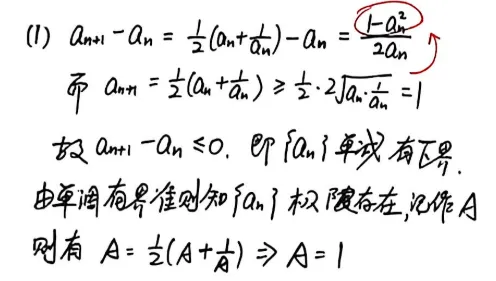 (1) aₙ₊₁ - aₙ = 1/2(aₙ + 1/aₙ) - aₙ = (1-aₙ²)/(2aₙ)
而 aₙ₊₁ = 1/2(aₙ + 1/aₙ) ≥ 1/2 · 2√(aₙ · 1/aₙ) = 1
故 aₙ₊₁ - aₙ ≤ 0. 即{aₙ}单减有下界.
由单调有界准则知{aₙ}极限存在,记作A
则有 A = 1/2(A + 1/A) ⇒ A = 1